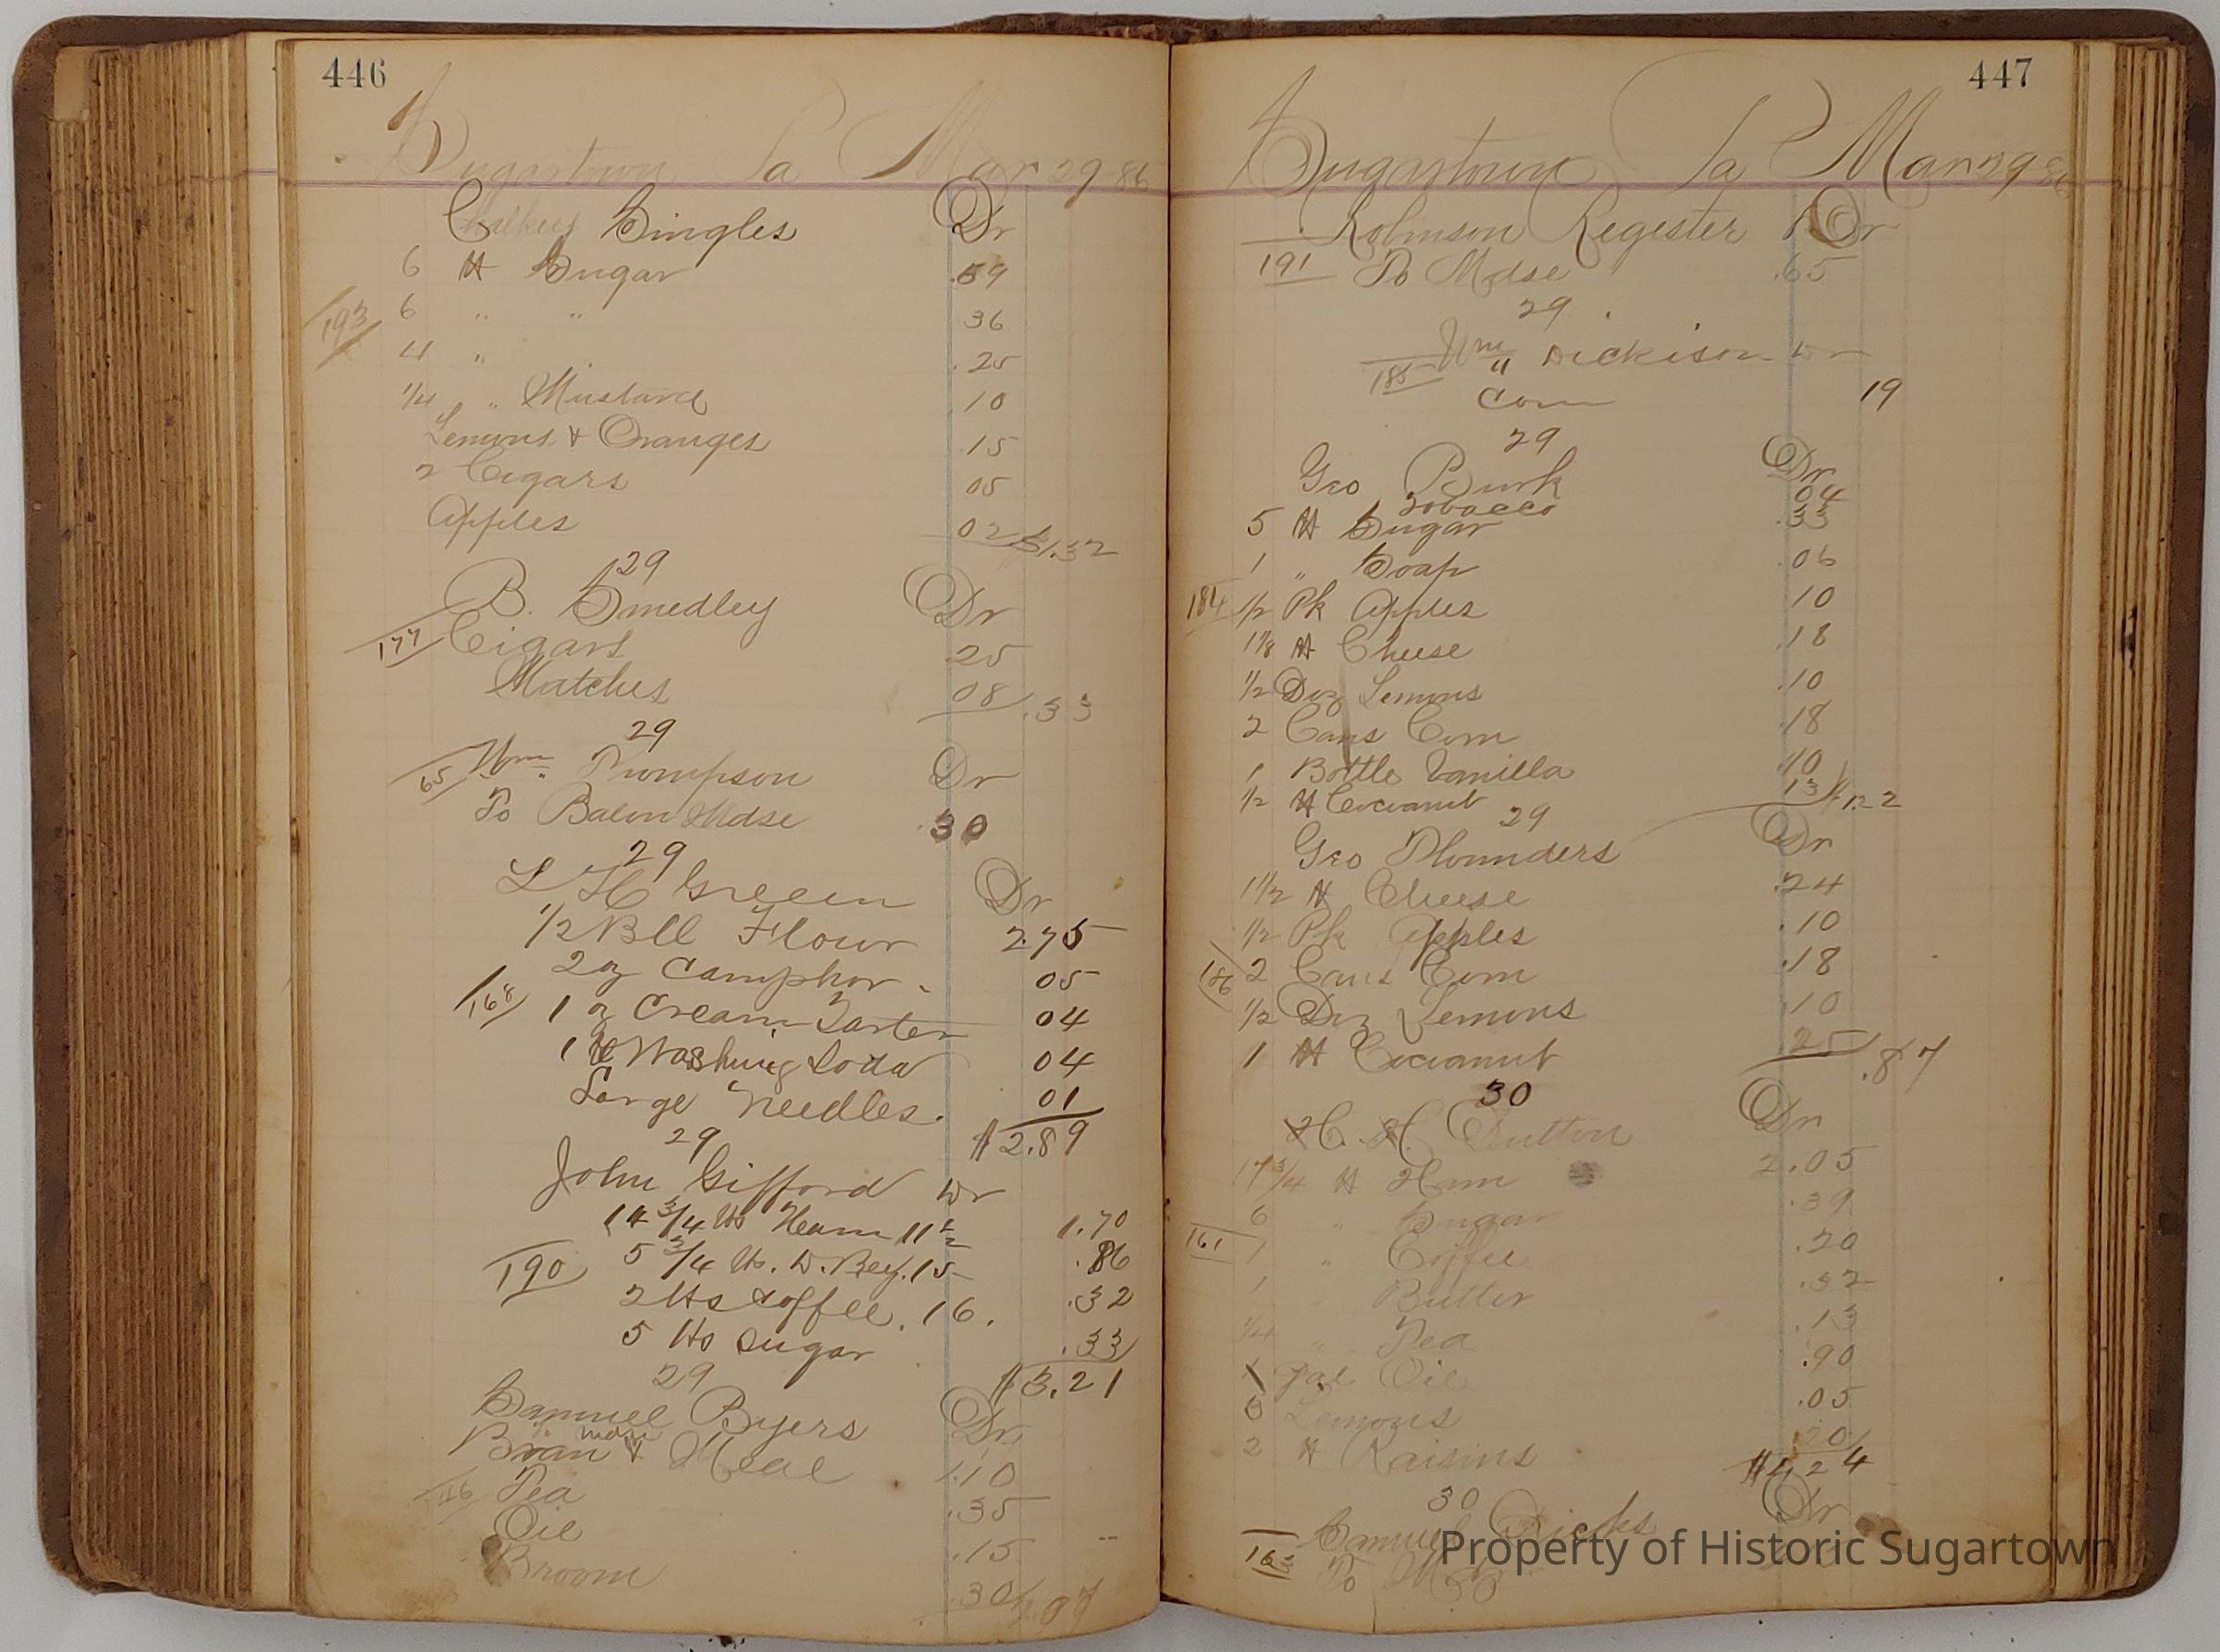 446
Sugartown Pa Mar 29 86
Singles Dr
6 lb Sugar .39
6 " " 36
193
4 " " .25
1/4 " Mustard 10
Lemons & Oranges .15
2 Cigars 05
Apples 02 $1.32
29
B. Smedley Dr
177 Cigars 25
Matches 08 .33
29
65 Wm Thompson Dr
To Balon Mdse .30
29
L H Green Dr
1/2 Bll Flour 2.75
2 oz Camphor. 05
168 1 oz Cream Tarter 04
1 lb Washing Soda 04
Large Needles. 01
$2.89
29
John Gifford Dr
14 3/4 lbs Ham 11 1/2 1.70
190 5 3/4 lbs. D. Beef. 15 .86
2 lbs Coffee. 16. .32
5 lbs Sugar .33
$3.21
29
Samuel Byers Dr
Mdse
Bran & Meal 1.10
Tea .35
Oil .15
Broom .30
447
Sugartown Pa Mar 29 86
Robinson Regester Dr
191 To Mdse .65
29
Wm " Dickison Dr
185
Corn 19
29
Geo Burk Dr
Tobacco 04
5 lb Sugar .33
1 " Soap .06
184 1/2 Pk Apples 10
1 1/8 lb Cheese .18
1/2 Doz Lemons .10
2 Cans Corn .18
1 Bottle Vanilla 10
1/2 lb Cocoanut 13 $1.22
29
Geo Plounders Dr
1 1/2 lb Cheese .24
1/2 Pk Apples .10
186 2 Cans Corn .18
1/2 Doz Lemons .10
1 lb Cocoanut .25 .87
30
H. H. Sutton Dr
17 3/4 lb Ham 2.05
6 " Sugar .39
161 1 " Coffee .20
1 Butter .32
1/4 " Tea .13
Gal Oil .90
Lemons .05
2 lb Raisins 20
$4.24
30
Samuel Dr
To
Property of Historic Sugartown